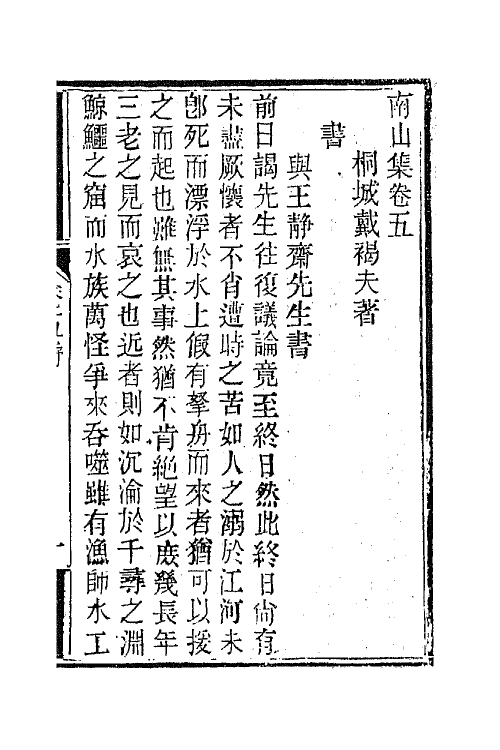 南山集卷五
桐城戴褐夫著
書
與王靜齋先生書
前日謁先生往復議論竟至終日然此終日尙有
未盡厥懷者不肖遭時之苦如人之溺於江河未
卽死而漂浮於水上假有拏舟而來者猶可以援
之而起也雖無其事然猶不肯絶望以庶幾長年
三老之見而哀之也近者則如沉淪於千尋之淵
鯨鱷之窟而水族萬怪爭來吞噬雖有漁師水工